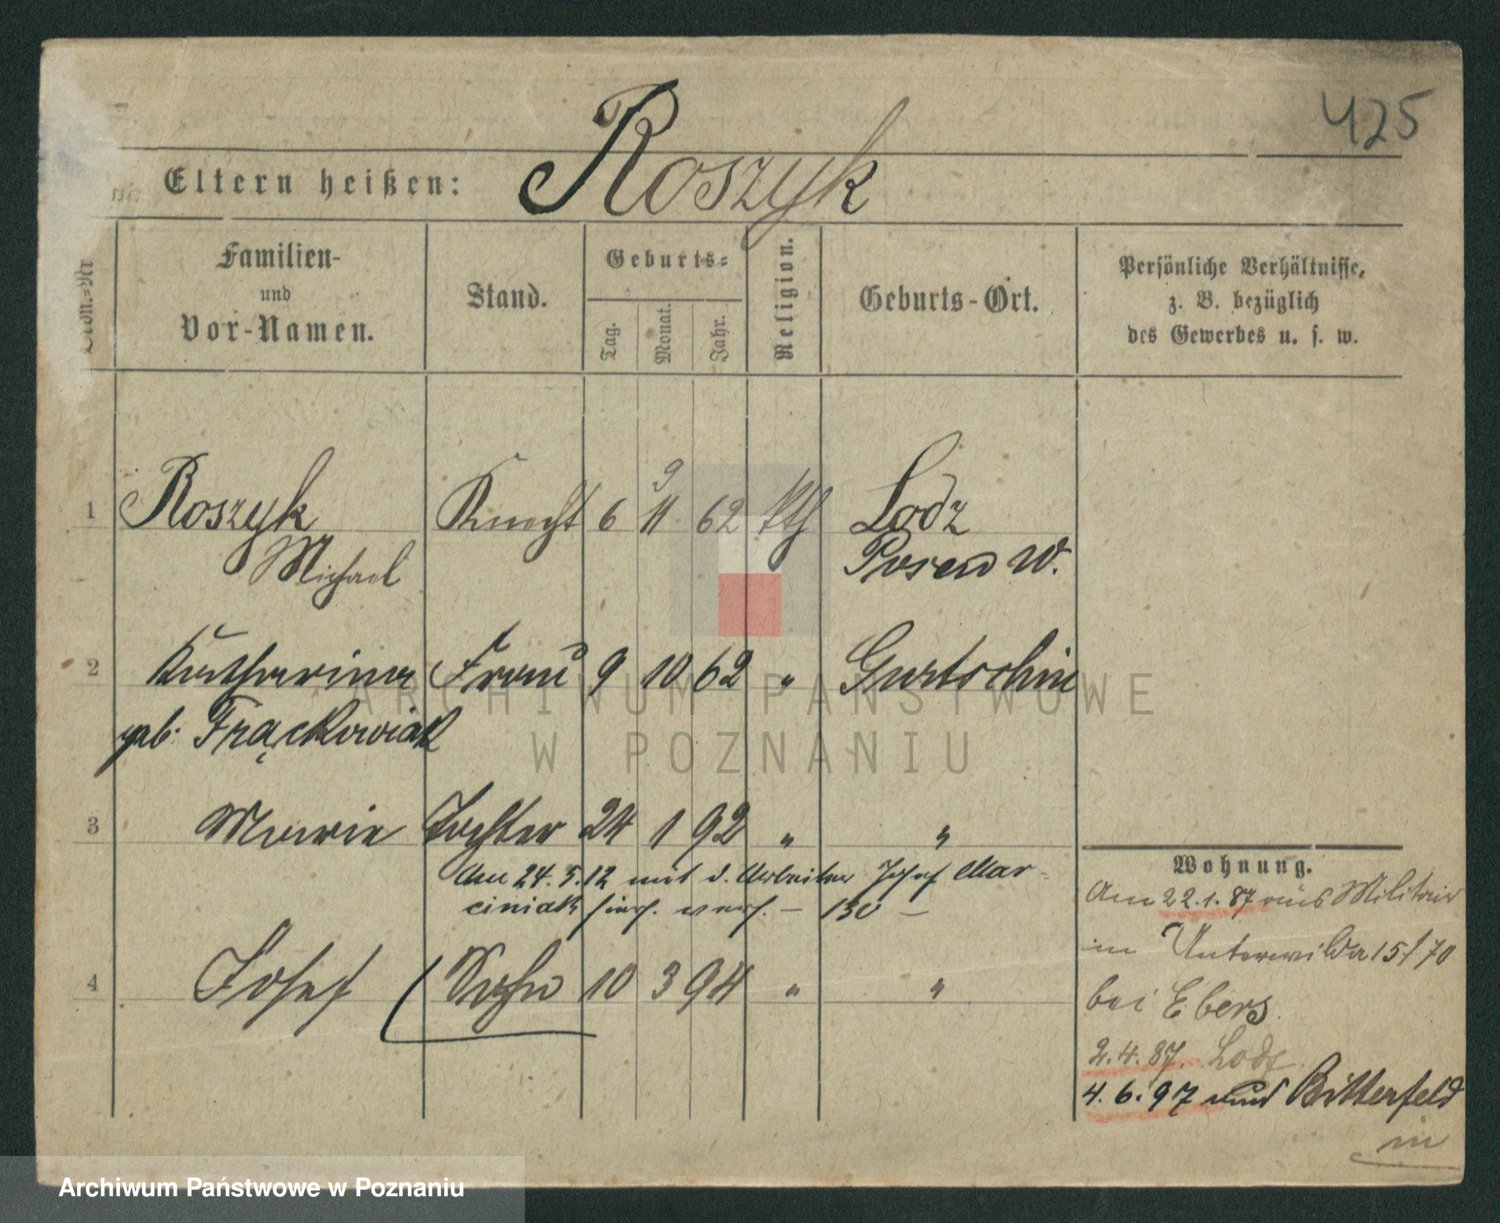 425
Eltern heißen: Roszyk
Familien-
und
Vor-Namen.
Stand.
Geburts-
Tag.
Monat.
Jahr.
Religion.
Geburts-Ort.
Persönliche Verhältnisse,
z. B. bezüglich
des Gewerbes u. s. w.
9
1 Roszyk Knecht 6 11 62 kth Lodz
Michael Posen W.
2 Katharina Frau 9 10 62 " Gurtschin
geb. Frąckowiak
3 Marie Tochter 24 1 92 " "
Am 24.5.12 mit d. Arbeiter Josef Mar-
ciniak hier verh. — 130 —
4 Josef Sohn 10 3 94 " "
Wohnung.
Am 22.1.87 aus Militair
in Unterwilda 15/70
bei Ebers.
2.4.87. Lodz
4.6.97 nach Bitterfeld
ARCHIWUM PAŃSTWOWE
W POZNANIU
Archiwum Państwowe w Poznaniu